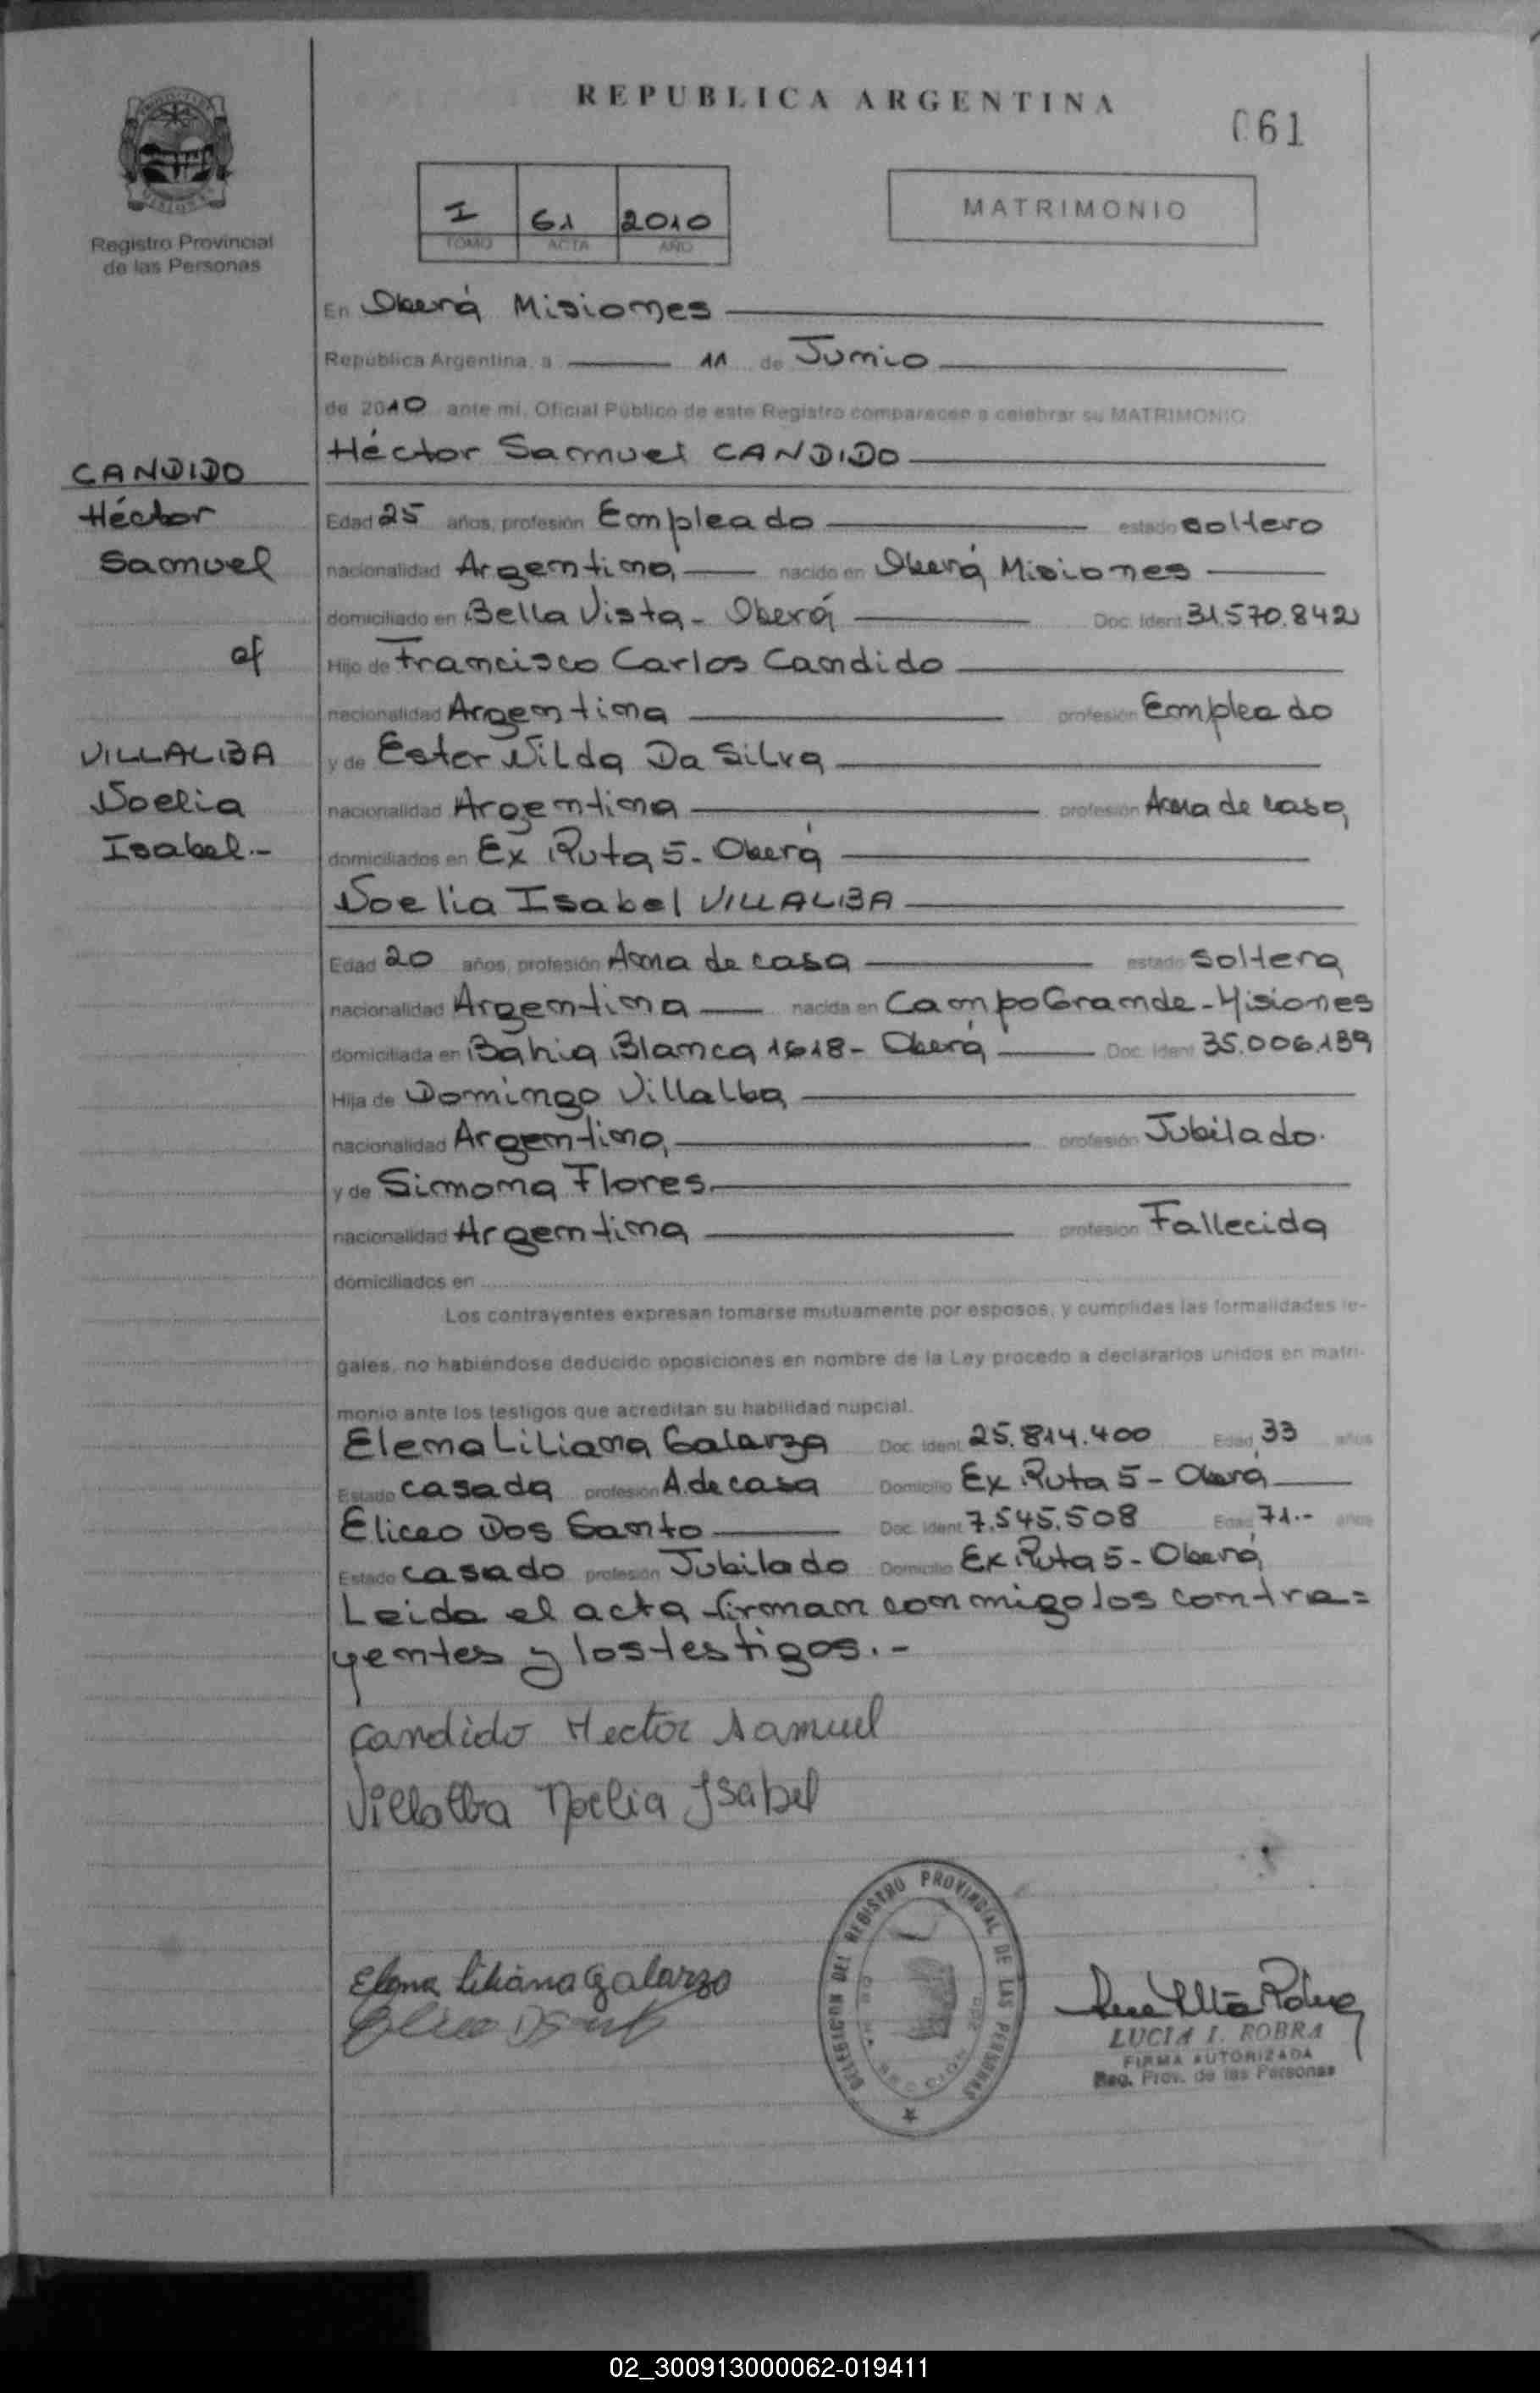 REPUBLICA ARGENTINA
061
I 61 2010
TOMO ACTA AÑO
MATRIMONIO
Registro Provincial
de las Personas
En Oberá Misiones
República Argentina, a 11 de Junio
de 2010 ante mí, Oficial Público de este Registro comparecen a celebrar su MATRIMONIO
Héctor Samuel CANDIDO
CANDIDO
Héctor
Samuel
Edad 25 años, profesión Empleado estado soltero
nacionalidad Argentina nacido en Oberá Misiones
domiciliado en Bella Vista - Oberá Doc. Ident 31.570.842
Hijo de Francisco Carlos Candido
nacionalidad Argentina profesión Empleado
y de Ester Nilda Da Silva
nacionalidad Argentina profesión Ama de casa
domiciliados en Ex Ruta 5 - Oberá
VILLALBA
Noelia
Isabel.-
Noelia Isabel VILLALBA
Edad 20 años, profesión Ama de casa estado soltera
nacionalidad Argentina nacida en Campo Grande - Misiones
domiciliada en Bahia Blanca 1618 - Oberá Doc. Ident 35.006.189
Hija de Domingo Villalba
nacionalidad Argentina profesión Jubilado.
y de Simona Flores.
nacionalidad Argentina profesión Fallecida
domiciliados en
Los contrayentes expresan tomarse mutuamente por esposos, y cumplidas las formalidades le-
gales, no habiéndose deducido oposiciones en nombre de la Ley procedo a declararlos unidos en matri-
monio ante los testigos que acreditan su habilidad nupcial.
Elena Liliana Galarza Doc. Ident 25.814.400 Edad 33 años
Estado casada profesión A. de casa Domicilio Ex Ruta 5 - Oberá
Eliceo Dos Santo Doc. Ident 7.545.508 Edad 71.- años
Estado casado profesión Jubilado Domicilio Ex Ruta 5 - Oberá
Leida el acta firman conmigo los contra=
yentes y los testigos.-
Candido Hector Samuel
Villalba Noelia Isabel
Elena Liliana Galarza
DELEGACION DEL REGISTRO PROVINCIAL DE LAS PERSONAS
LUCIA I. ROBRA
FIRMA AUTORIZADA
Reg. Prov. de las Personas
02_300913000062-019411